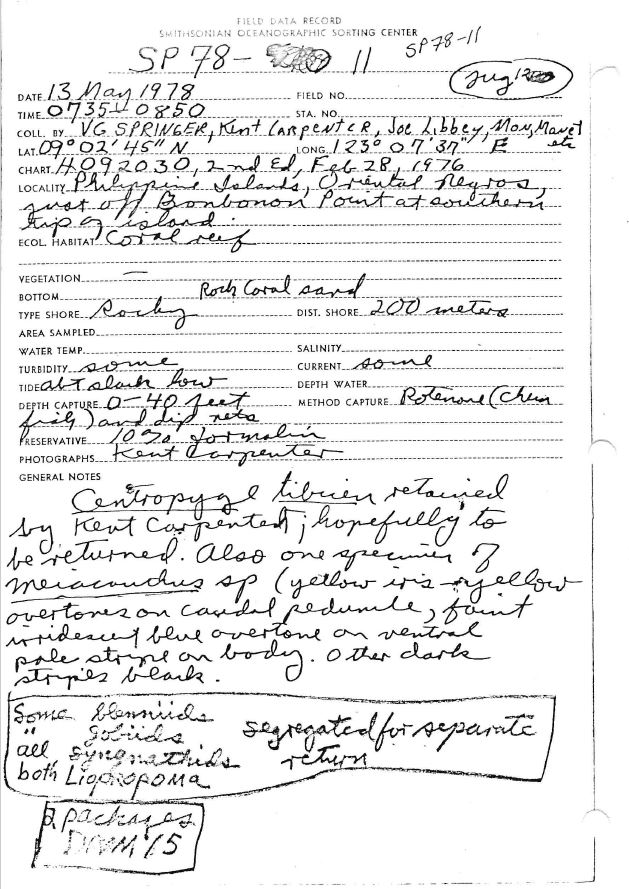 FIELD DATA RECORD
SMITHSONIAN OCEANOGRAPHIC SORTING CENTER
SP 78- 11
SP78-11
DATE 13 May 1978 FIELD NO.
TIME 0735-0850 STA. NO.
COLL. BY VG SPRINGER, Kent Carpenter, Joe Libbey, etc
LAT. 09° 02' 45" N LONG. 123° 07' 37" E
CHART H.O. 92030, 2nd Ed, Feb 28, 1976
LOCALITY Philippine Islands, Oriental Negros,
just off Bonbonon Point at southern
tip of island.
ECOL. HABITAT Coral reef
VEGETATION —
BOTTOM Rock Coral sand
TYPE SHORE Rocky DIST. SHORE 200 meters
AREA SAMPLED
WATER TEMP. SALINITY
TURBIDITY some CURRENT some
TIDE abt slack low DEPTH WATER
DEPTH CAPTURE 0-40 feet METHOD CAPTURE Rotenone (Chem
fish) and dip nets
PRESERVATIVE 10% formalin
PHOTOGRAPHS Kent Carpenter
GENERAL NOTES
Centropygl tibicen retained
by Kent Carpenter; hopefully to
be returned. Also one specimen of
Meiacanthus sp (yellow iris - yellow
overtones on caudal peduncle, faint
irridescent blue overtone on ventral
pale stripe on body. Other dark
stripes black.
Some blenniids
" gobiids
all syngnathids
both Liopropoma
segregated for separate
return
packages